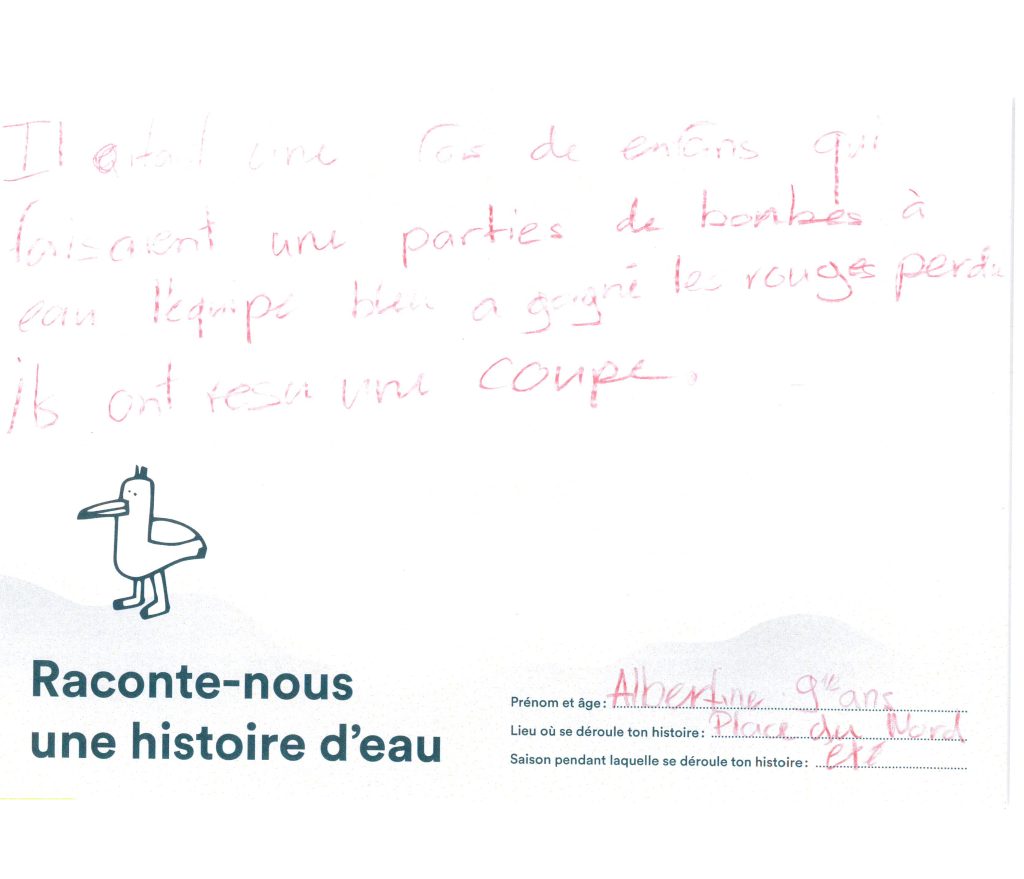 Il était une fois de enfans qui
faisaient une parties de bonbes à
eau l'équipe bleu a gaigné les rouges perdu
ils ont resu une coupe.
Raconte-nous
une histoire d'eau
Prénom et âge : Albertine 9 ans
Lieu où se déroule ton histoire : Place du Nord
Saison pendant laquelle se déroule ton histoire : été